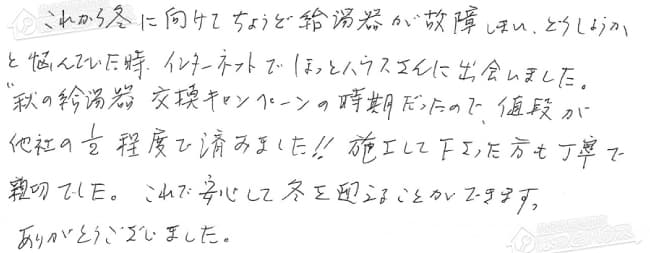 これから冬に向けてちょうど給湯器が故障しまい、どうしようか
と悩んでいた時、インターネットでほっとハウスさんに出会いました。
"秋の給湯器 交換キャンペーンの時期だったので、値段が
他社の1/2程度で済みました!! 施工して下さった方も丁寧で
親切でした。これで安心して冬を迎えることができます。
ありがとうございました。